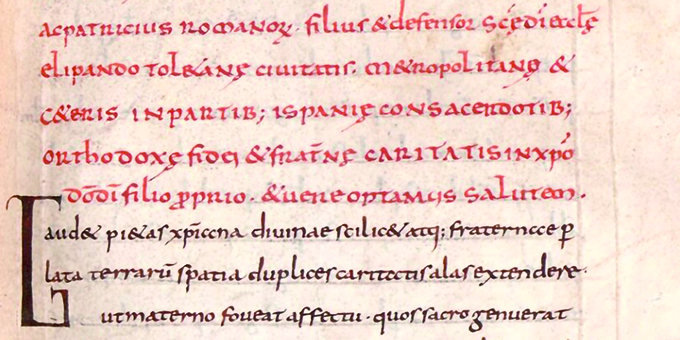 acpatricius romanoꝝ. filius &defensor sc̄ę dī eccl̄ę
elipando tol&anę civitatis. m&ropolitano &
c&eris in partib; ispanię consacerdotib;
orthodoxę fidei &frat̄nę caritatis in xp̄o
dō dī filio ꝓprio. &uere optamus salutem.
Gaud& pi&as xp̄iana diuinae scilic& atq; fraternae ꝑ
lata terrarū spatia duplices caritatis alas extendere.
ut materno foueat affectu. quos sacro genuerat